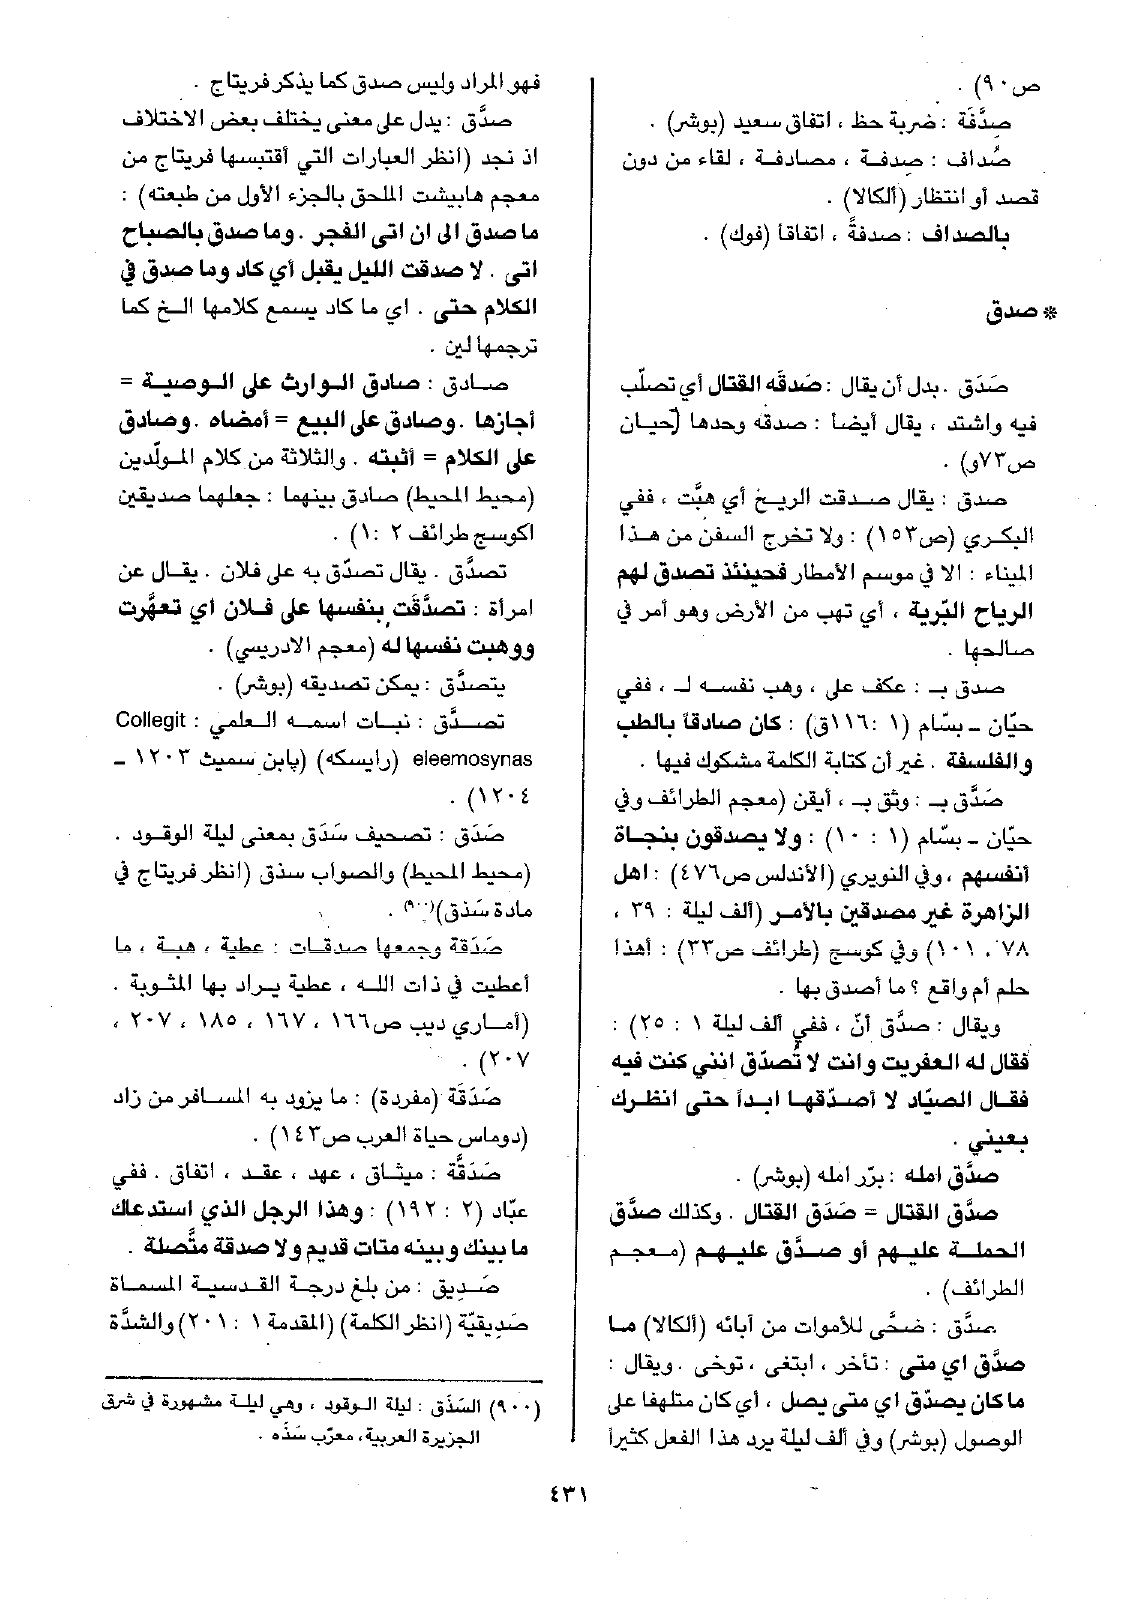 ص٩٠) .
صِدَّفَة : ضربة حظ ، اتفاق سعيد (بوشر) .
صُداف : صدفة ، مصادفة ، لقاء من دون
قصد أو انتظار (ألكالا) .
بالصداف : صدفةً ، اتفاقا (فوك) .
* صدق
صَدَق . بدل أن يقال : صَدقَه القتال أي تصلّب
فيه واشتد ، يقال أيضا : صدقه وحدها (حيان
ص٧٣و) .
صدق : يقال صدقت الريح أي هبَّت ، ففي
البكري (ص١٥٣) : ولا تخرج السفن من هذا
الميناء : الا في موسم الأمطار فحينئذ تصدق لهم
الرياح البّرية ، أي تهب من الأرض وهو أمر في
صالحها .
صدق بـ : عكف على ، وهب نفسه لـ ، ففي
حيّان ـ بسّام (١ : ١١٦ق) : كان صادقاً بالطب
والفلسفة . غير أن كتابة الكلمة مشكوك فيها .
صَدَّق بـ : وثق بـ ، أيقن (معجم الطرائف وفي
حيّان ـ بسّام (١ : ١٠) : ولا يصدقون بنجاة
أنفسهم ، وفي النويري (الأندلس ص٤٧٦) : اهل
الزاهرة غير مصدقين بالأمر (ألف ليلة : ٣٩ ،
٧٨ ، ١٠١) وفي كوسج (طرائف ص٣٣) : أهذا
حلم أم واقع ؟ ما أصدق بها .
ويقال : صدَّق أنّ ، ففي ألف ليلة ١ : ٢٥) :
فقال له العفريت وانت لا تُصدّق انني كنت فيه
فقال الصيّاد لا أصدّقها ابدأ حتى انظرك
بعيني .
صدَّق امله : برّر امله (بوشر) .
صدَّق القتال = صَدَق القتال . وكذلك صدَّق
الحملة عليهم أو صدَّق عليهم (معجم
الطرائف) .
صدَّق : ضحَّى للأموات من آبائه (ألكالا) ما
صدَّق اي متى : تأخر ، ابتغى ، توخى . ويقال :
ما كان يصدّق اي متى يصل ، أي كان متلهفا على
الوصول (بوشر) وفي ألف ليلة يرد هذا الفعل كثيراً
فهو المراد وليس صدق كما يذكر فريتاج .
صدَّق : يدل على معنى يختلف بعض الاختلاف
اذ نجد (انظر العبارات التي أقتبسها فريتاج من
معجم هابيشت الملحق بالجزء الأول من طبعته) :
ما صدق الى ان اتى الفجر . وما صدق بالصباح
اتى . لا صدقت الليل يقبل أي كاد وما صدق في
الكلام حتى . اي ما كاد يسمع كلامها الخ كما
ترجمها لين .
صادق : صادق الوارث على الوصية =
أجازها . وصادق على البيع = أمضاه . وصادق
على الكلام = أثبته . والثلاثة من كلام المولّدين
(محيط المحيط) صادق بينهما : جعلهما صديقين
اكوسج طرائف ٢ : ١) .
تصدَّق . يقال تصدّق به على فلان . يقال عن
امرأة : تصدَّقت بنفسها على فلان اي تعهَّرت
ووهبت نفسها له (معجم الادريسي) .
يتصدَّق : يمكن تصديقه (بوشر) .
تصدَّق : نبات اسمه العلمي : Collegit
eleemosynas (رايسكه) (پاين سميث ١٢٠٣ ـ
١٢٠٤) .
صَدَق : تصحيف سَذَق بمعنى ليلة الوقود .
(محيط المحيط) والصواب سذق (انظر فريتاج في
مادة سَذق)(٩٠٠) .
صَدَقة وجمعها صدقات : عطية ، هبة ، ما
أعطيت في ذات الله ، عطية يراد بها المثوبة .
(أماري ديب ص١٦٦ ، ١٦٧ ، ١٨٥ ، ٢٠٧ ،
٢٠٧) .
صَدَقَة (مفردة) : ما يزود به المسافر من زاد
(دوماس حياة العرب ص١٤٣) .
صَدَقَّة : ميثاق ، عهد ، عقد ، اتفاق . ففي
عبّاد (٢ : ١٩٢) : وهذا الرجل الذي استدعاك
ما بينك وبينه متات قديم ولا صدقة متَّصلة .
صَديق : من بلغ درجة القدسية المسماة
صَديقيّة (انظر الكلمة) (المقدمة ١ : ٢٠١) والشدَّة
(٩٠٠) السَّذَق : ليلة الوقود ، وهي ليلة مشهورة في شرق
الجزيرة العربية، معرّب سَذَه .
٤٣١